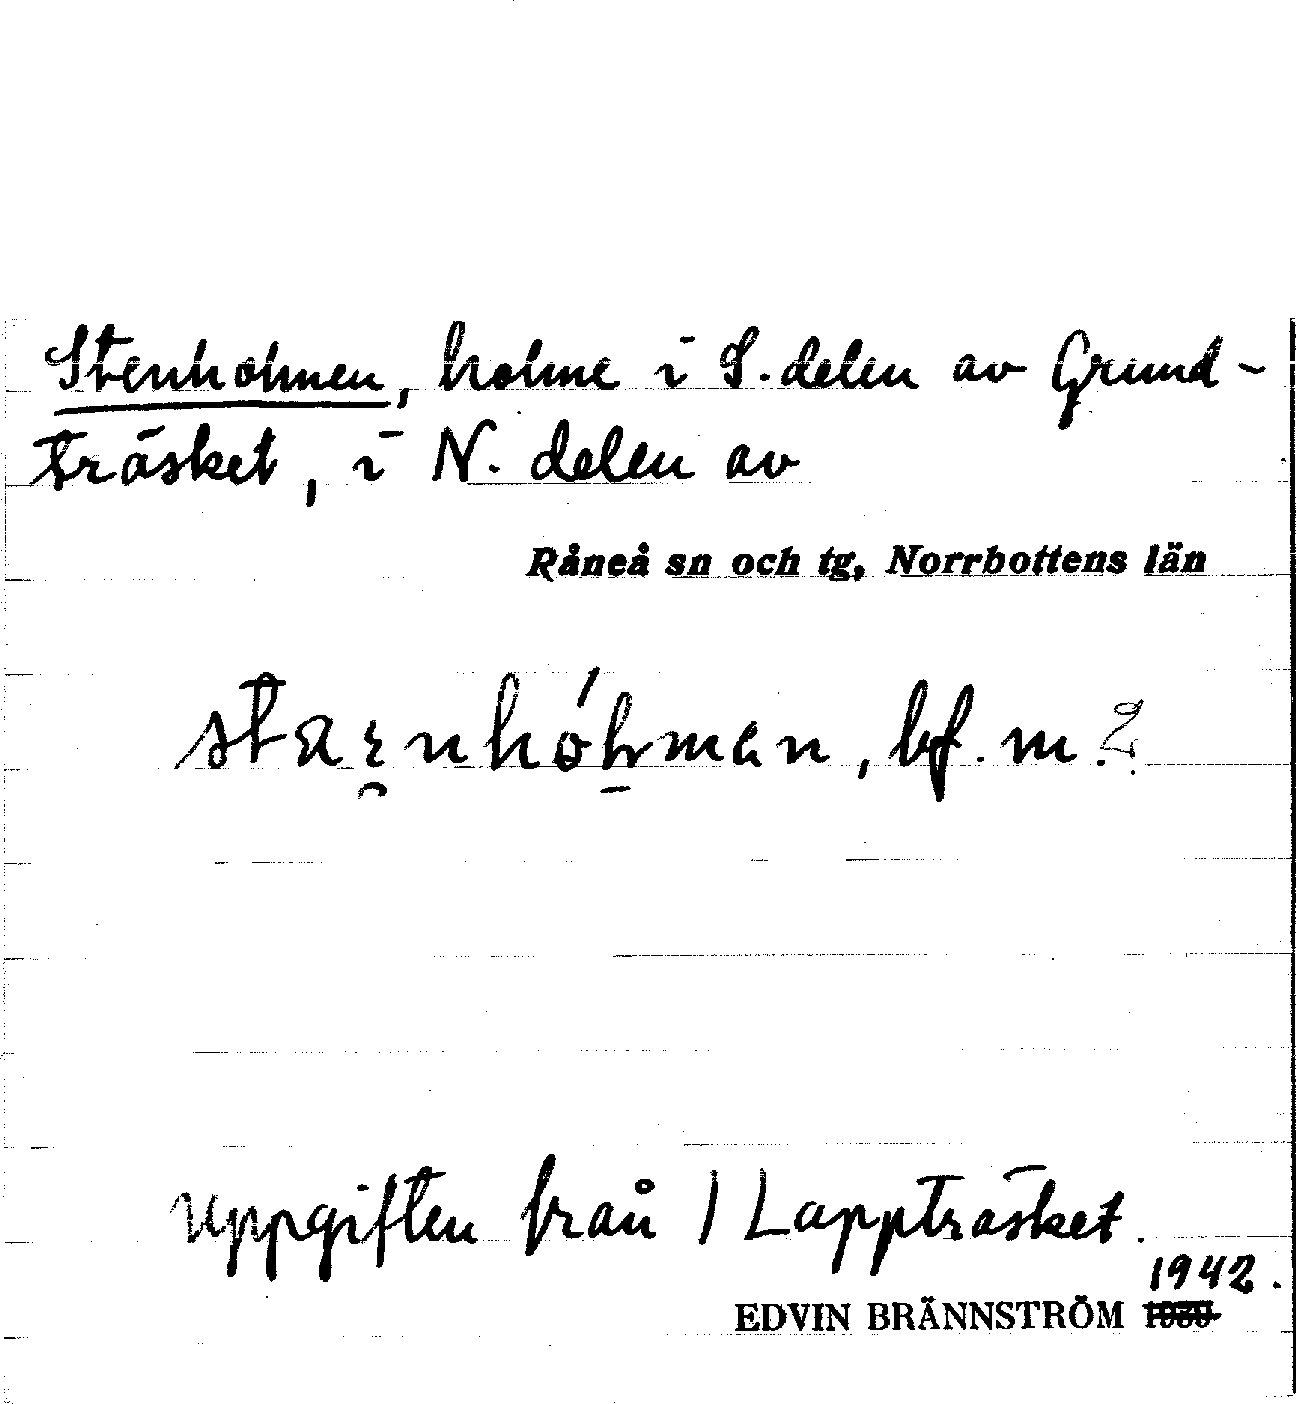 Stenholmen, holme i S. delen av Grund-
träsket, i N. delen av
Råneå sn och tg, Norrbottens län
bf. m.
Uppgiften från 1 Lappträsket.
1942.
EDVIN BRÄNNSTRÖM 1930